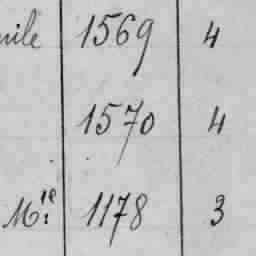 1569 4
1570 4
M.le 1178 3